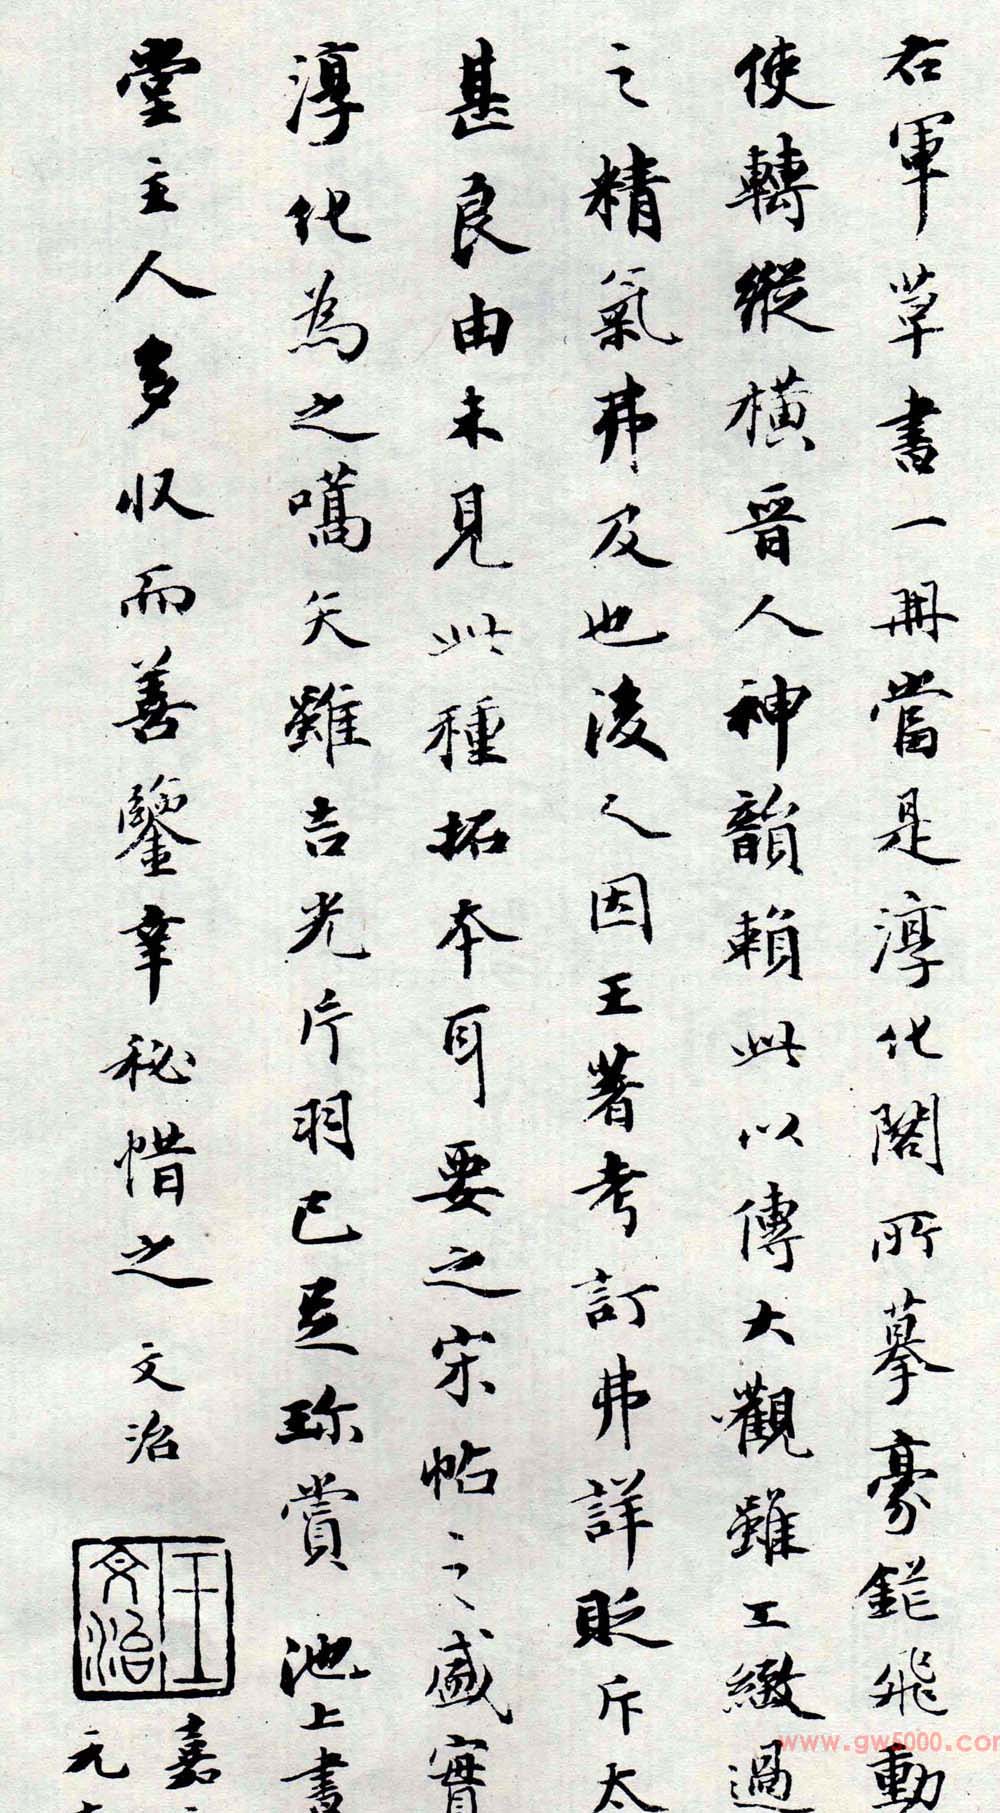 右軍草書一冊當是淳化閣所摹豪鋩飛動
使轉縱橫晉人神韻賴此以傳大觀雖工緻過
之精氣弗及也後之因王著考訂弗詳貶斥太
甚良由未見此種拓本耳要之宋帖之盛實
淳化為之嚆矢雖吉光片羽已足珎賞池上書
堂主人多収而善鑒幸秘惜之文治
王文治
嘉
元
www.gw5000.com